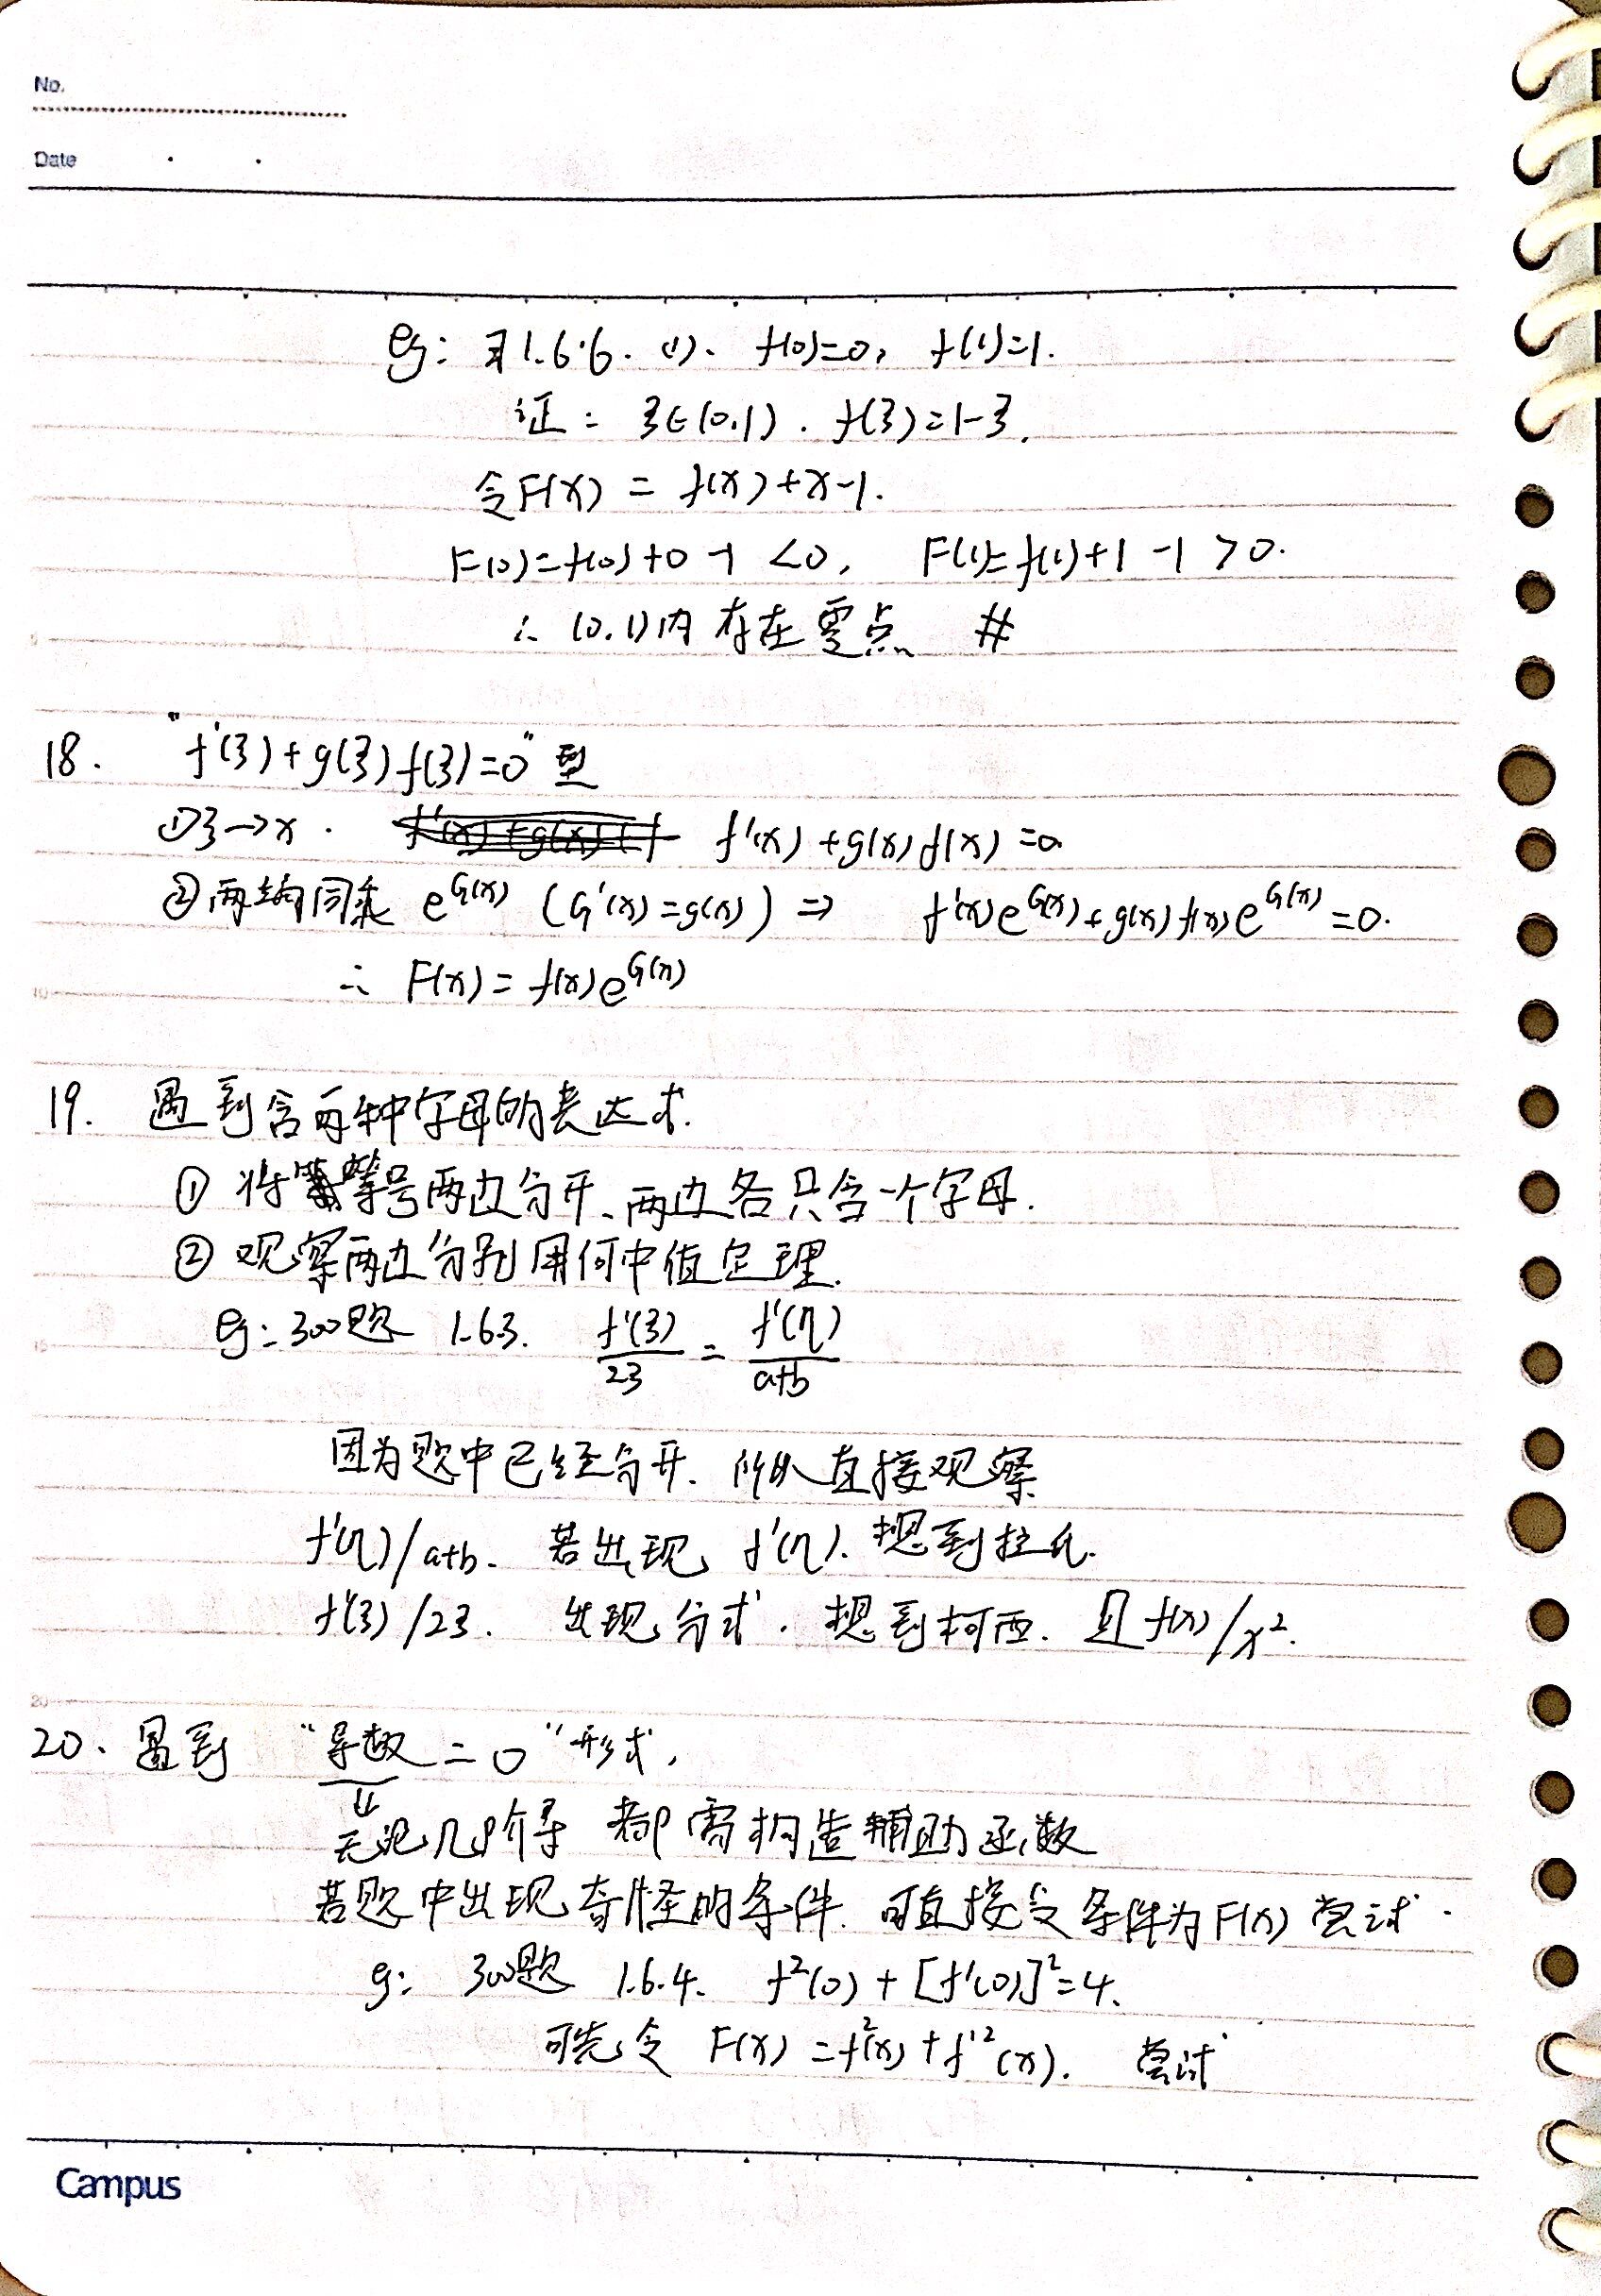 No.
Date
eg: 习1.6.6. (1). f(0)=0, f(1)=1.
证: ξ∈(0,1). f(ξ)=1-ξ.
令F(x) = f(x)+x-1.
F(0)=f(0)+0-1 <0, F(1)=f(1)+1-1>0.
∴ (0,1)内存在零点 #
18. "f'(ξ)+g(ξ)f(ξ)=0"型
①ξ→x. f'(x)+g(x)f(x)=0
②两端同乘 e^{G(x)} (G'(x)=g(x)) ⇒ f'(x)e^{G(x)}+g(x)f(x)e^{G(x)}=0.
∴ F(x)=f(x)e^{G(x)}
19. 遇到含两种字母的表达式.
① 将等号两边分开、两边各只含一个字母.
② 观察两边分别用何中值定理.
eg: 300题 1.63. f'(ξ)/2ξ = f'(η)/a+b
因为题中已经分开. 所以直接观察
f'(η)/a+b. 若出现 f'(η). 想到拉氏.
f'(ξ)/2ξ. 出现分式. 想到柯西. 且f(x)/x².
20. 遇到 "导数=0"形式,
⇓
无论几阶导 都需构造辅助函数
若题中出现奇怪的条件. 可直接令条件为F(x)尝试.
eg: 300题 1.6.4. f²(0)+[f'(0)]²=4.
可先令 F(x)=f²(x)+f'²(x). 尝试
Campus